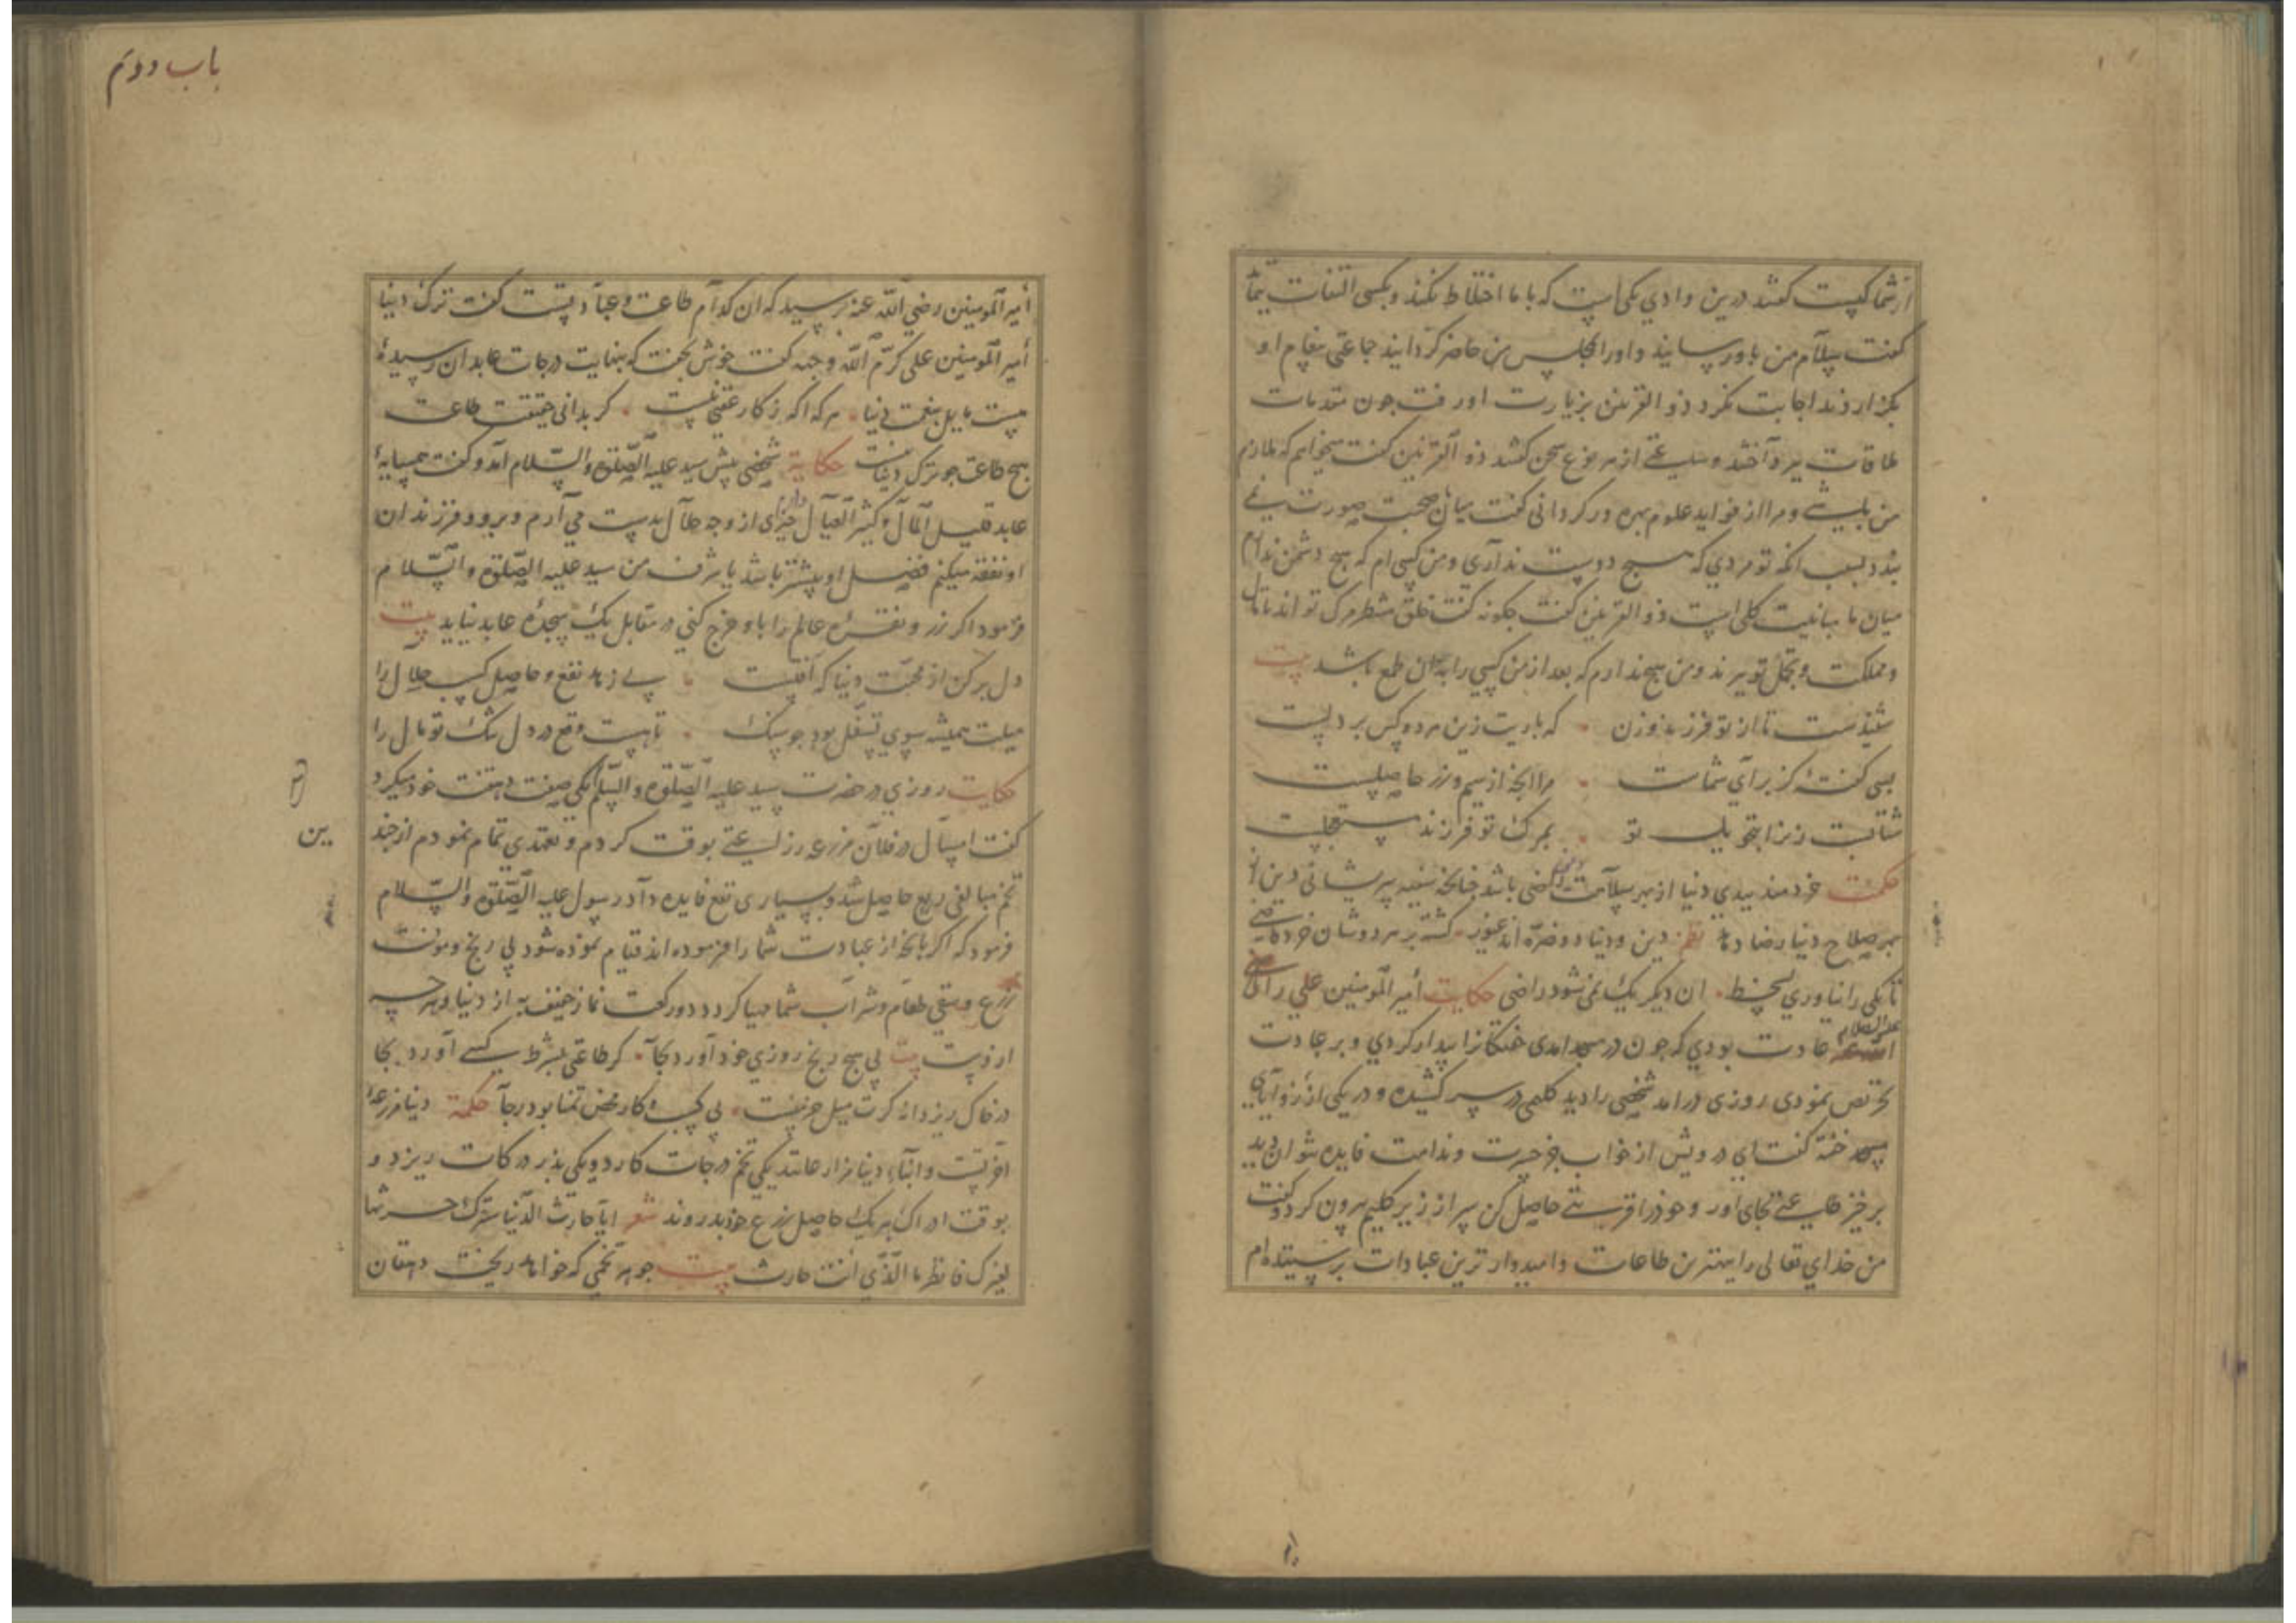 از شما کیست گفتند درین وادی یکی است که با ما اختلاط نکند و بکسی التفات ننماید
گفت سلام من باو رسانید و او را بمجلس من حاضر گردانید جماعتی پیغام او
بگزاردند اجابت نکرد ذو القرنین بزیارت او رفت چون مقدمات
ملاقات بپرداختند و ساعتی از هر نوع سخن گفتند ذو القرنین گفت میخواهم که ملازم
من باشی و مرا از فواید علوم بهره ور گردانی گفت میان ما صحبت صورت نمی
بندد بسبب آنکه تو مردی که هیچ دوست نداری و من کسی ام که هیچ دشمن ندارم
میان ما مباینت کلی است ذو القرنین گفت چگونه گفت خلق منتظر مرگ تو اند تا مال
و مملکت و تجمل تو برند و من هیچ ندارم که بعد از من کسی را به آن طمع باشد بیت
شنیدست تا از تو فرزند و زن که بارت زین هر دو کس بر دلست
بسی گفته کز برای شماست مرا آنچه از سیم و زر حاصلست
شتابست زنرا بتحویل تو بمرگ تو فرزند مستعجلست
حکمت خردمند ببدی دنیا از بهر سلامت دین راضی باشد چنانچه سفیه پریشانی دین را
بهر صلاح دنیا رضا دهد نظم دین و دنیا دو ضره اند عزیز گشته بر هر دوشان خرد قاضی
تا یکی را نیاوری بسخط آن دیگر یک نمی شود راضی حکایت أمیر المومنین علی را رضی
علیه السلام عادت بودی که چون در مسجد آمدی خفتگانرا بیدار کردی و بر عبادت
تحریص نمودی روزی درآمد شخصی را دید گلیمی در سر کشیده و در یکی از زوایای
مسجد خفته گفت ای درویش از خواب جز حسرت و ندامت فایده نتوان دید
برخیز طاعتی بجای آور و خود را قربتی حاصل کن سر از زیر گلیم بیرون کرد و گفت
من خدای تعالی را بهترین طاعات و امیدوار ترین عبادات پرستیده ام
باب دوم
أمیر المومنین رضی الله عنه پرسید که آن کدام طاعت و عبادتست گفت ترک دنیا
أمیر المومنین علی کرم الله وجهه گفت خوش بخفت که بنهایت درجات عابدان رسیدهٔ
نیست مایل بنعمت دنیا هر که آگه ز کار عقبی نیست گر بدانی حقیقت طاعت
هیچ طاعت چو ترک دنیا نیست حکایة شخصی پیش سید علیه الصلوة والسلام آمد و گفت همسایهٔ
عابد قلیل المال و کثیر العیال دارم چیزی از وجه حلال بدست می آرم و برو و فرزندان
او نفقه میکنم فضل او بیشتر باشد یا شرف من سید علیه الصلوة والسلام
فرمود اگر زر و نقره عالم را باو خرج کنی در مقابل یک سجدهٔ عابد نیاید بیت
دل برکن از محبت دنیا که آفتست بی زهد نفع و حاصل کسب حلال را
میلت همیشه سوی تسفل بود چو سنگ تا هست وقع در دل سنگ تو مال را
حکایت روزی در حضرت سید علیه الصلوة والسلام یکی صفت دهقنت خود میکرد
گفت امسال در فلان مزرعه زراعتی بوقت کردم و تعهدی تمام نمودم از چند
تخم مبالغی ریع حاصل شد و بسیاری نفع فایده داد رسول علیه الصلوة والسلام
فرمود که اگر بآنچه از عبادت شما را فرموده اند قیام نموده شود بی رنج و مونت
زرع و سقی طعام و شراب شما مهیا گردد دو رکعت نماز خفیف به از دنیا و هر چه
دروست بیت بی هیچ رنج روزی خود آورد بجا گر طاعتی بشرط کسی آورد بجا
در خاک ریز دانه گرت میل خرمنست بی کسب و کار محض تمنا بود رجا حکمة دنیا مزرعهٔ
آخرتست و ابناء دنیا مزارعانند یکی تخم درجات کارد و یکی بذر درکات ریزد و
بوقت ادراک هر یک حاصل زرع خود بدروند شعر أیا حارث الدنیا ستترک حرثها
لغیرک فانظر ما الذی أنت حارث بیت چو هر تخمی که خواهد ریخت دهقان
ین